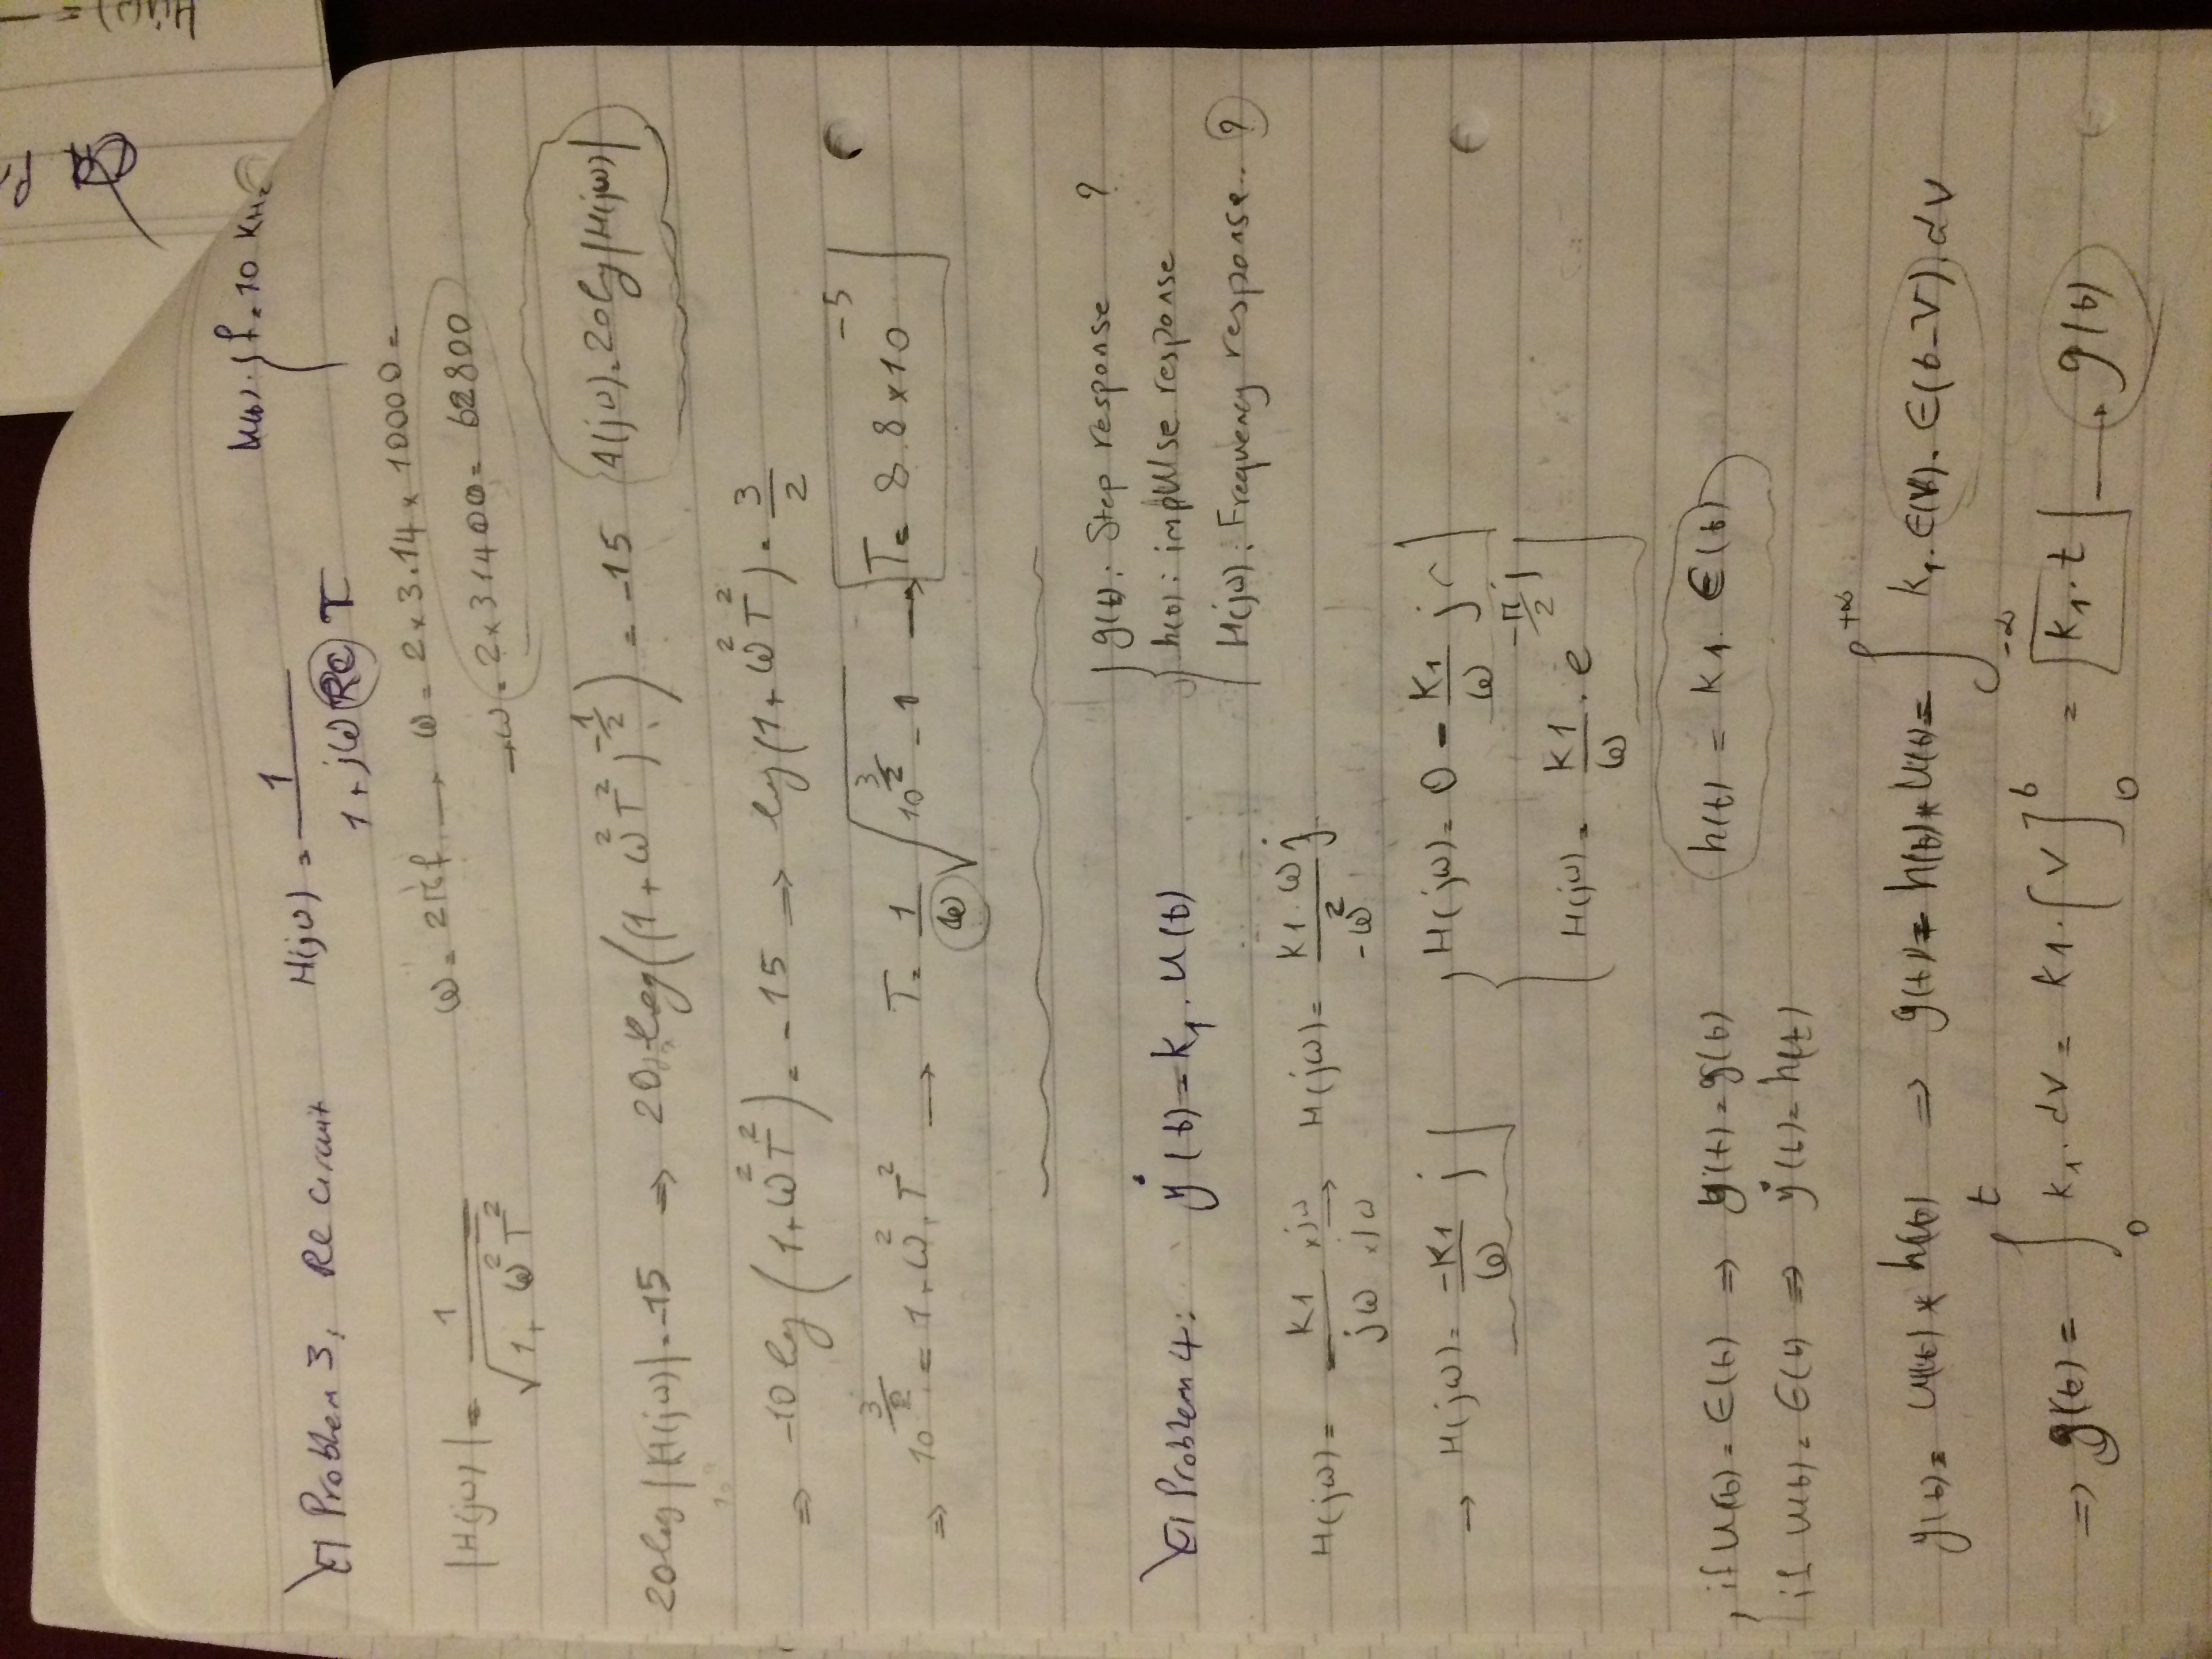 Problem 3: RC Circuit H(jω) = 1 / (1 + jω RC) T u(t): { f = 10 KHz
|H(jω)| = 1 / √(1 + ω² T²) ω = 2πf → ω = 2 × 3.14 × 10000 =
→ ω = 2 × 31400 = 62800
20 log |H(jω)| = -15 ⇒ 20 log((1 + ω² T²)^(-1/2)) = -15 A(jω) = 20 log |H(jω)|
⇒ -10 log (1 + ω² T²) = -15 ⇒ log(1 + ω² T²) = 3/2
⇒ 10^(3/2) = 1 + ω² . T² → T = 1/ω √(10^(3/2) - 1) → T = 8.8 × 10^-5
g(t): Step response ?
Problem 4: ẏ(t) = K₁ . u(t) h(t): impulse response
H(jω): Frequency response.. ?
H(jω) = K1 / jω ×jω / ×jω → H(jω) = K1 . ω j / -ω²
→ H(jω) = -K1/ω j { H(jω) = 0 - K₁/ω j
H(jω) = K1/ω . e^(-π/2 j)
if u(t) = ϵ(t) ⇒ y(t) = g(t) h(t) = K₁ . ϵ(t)
if u(t) = ϵ(t) ⇒ ẏ(t) = h(t)
y(t) = u(t) * h(t) ⇒ g(t) = h(t) * u(t) = ∫_{-∞}^{+∞} K₁ . ϵ(V) . ϵ(t - V) . dV
⇒ g(t) = ∫_0^t K₁ . dV = K1 . [V]_0^t = K₁ . t → g(t)
H(jω) =